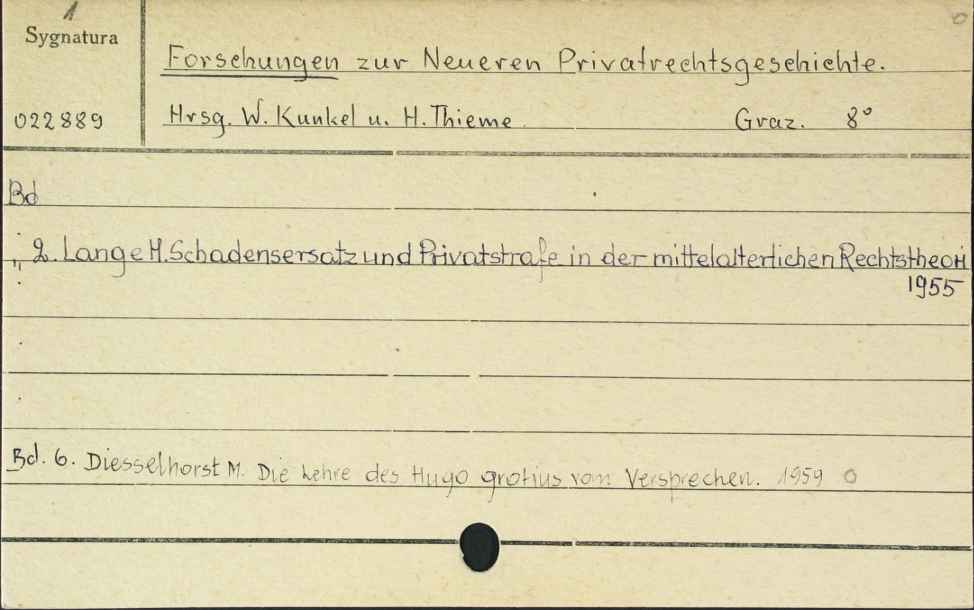 1
Sygnatura
Forschungen zur Neueren Privatrechtsgeschichte.
022889
Hrsg. W. Kunkel u. H. Thieme Graz. 8°
Bd
„ 2. Lange H. Schadensersatz und Privatstrafe in der mittelalterlichen Rechtstheori
1955
Bd. 6. Diesselhorst M. Die Lehre des Hugo grotius vom Versprechen. 1959 0